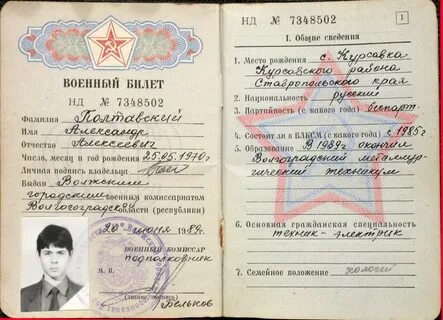 ВОЕННЫЙ БИЛЕТ
НД № 7348502
Фамилия Полтавский
Имя Александр
Отчество Алексеевич
Число, месяц и год рождения 25.05.1970 г.
Личная подпись владельца
Выдан Волжским
городским военным комиссариатом
Волгоградской области (республики)
20 июня 1989 г.
ВОЕННЫЙ КОМИССАР
подполковник
М. П.
(звание, подпись)
Бельков
НД № 7348502
1
I. Общие сведения
1. Место рождения с. Курсавка
Курсавского района
Ставропольского края
2. Национальность русский
3. Партийность (с какого года) беспарт.
4. Состоит ли в ВЛКСМ (с какого года) с 1985 г.
5. Образование В 1989г. окончил
Волгоградский металлур-
гический техникум
6. Основная гражданская специальность
техник-электрик
7. Семейное положение холост